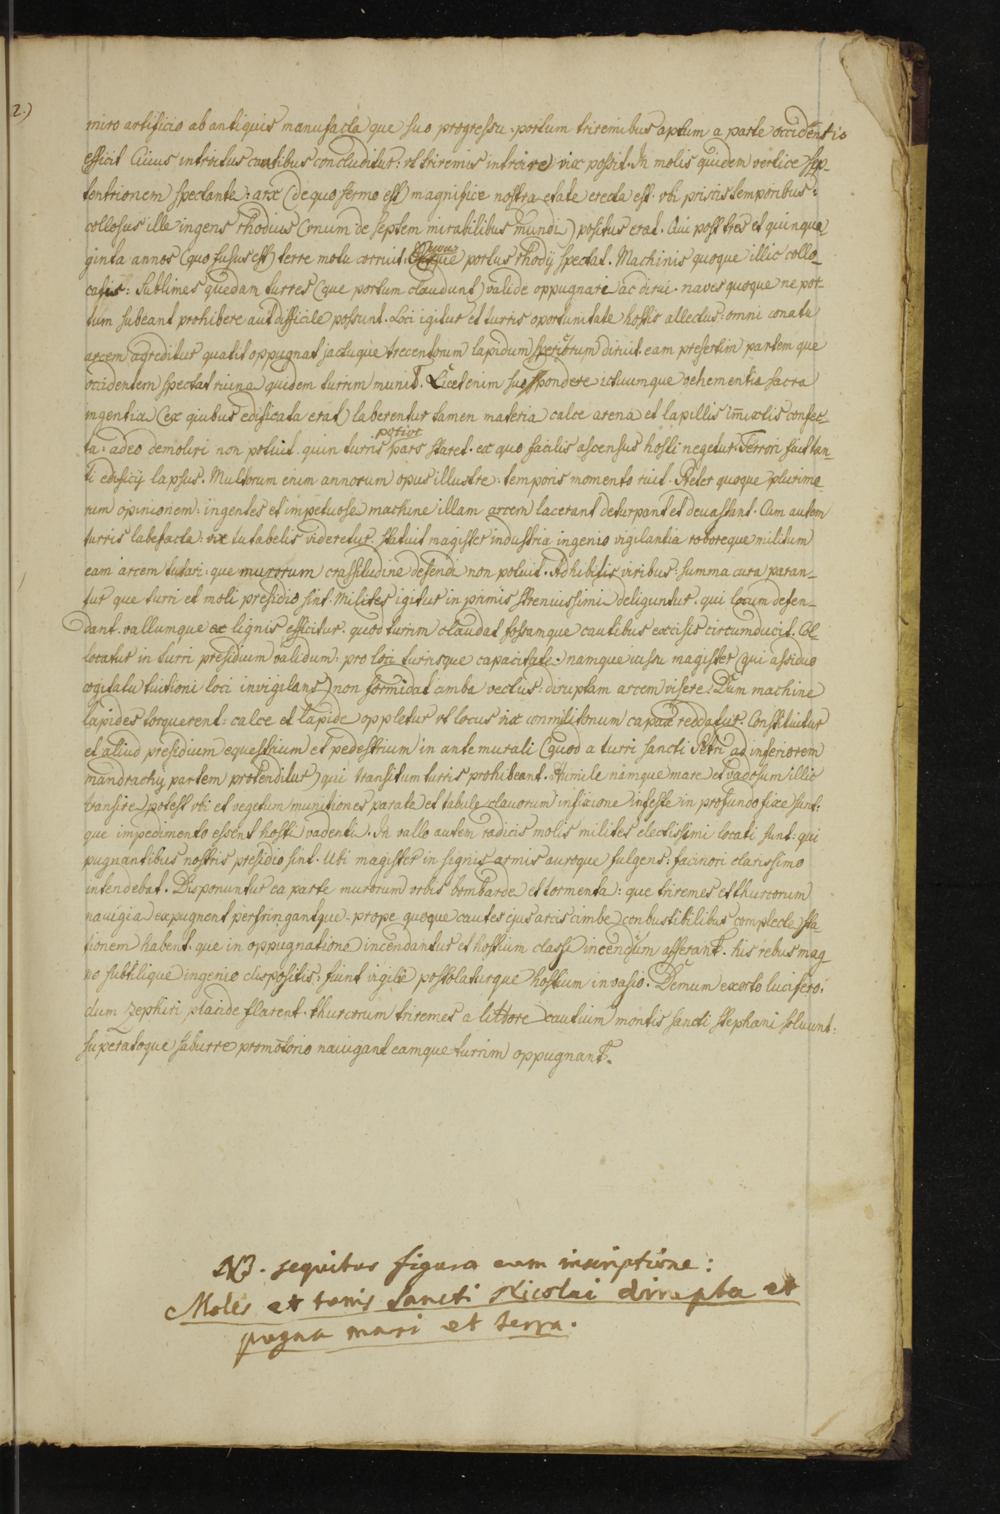 2.)
miro artificio ab antiquis manufacta que suo progressu. portum triremibus aptum a parte occidentis
efficit Cuius introitus cautibus concluditur: vt triremis introire vix possit. In molis quidem vertice sep-
tentrionem spectante: arx (de quo sermo est) magnifice nostra etate erecta est. vbi priscis temporibus:
collosus ille ingens rhodius (vnum de septem mirabilibus mundi) positus erat. Qui post tres et quinqua
ginta annos (quo fusus est) terre motu corruit. portus rhodij spectat. Machinis quoque illic collo-
catis: Sublimes quedam turres (que portum claudunt) valide oppugnari ac dirui. naves quoque ne por-
tum subeant prohibere aut difficile possunt. Loci igitur et turris oportunitate hostis allectus: omni conatu
arcem agreditur quatit oppugnat jactuque trecentorum lapidum spericorum diruit eam presertim partem que
occidentem spectat ruina quidem turrim munit. Licet enim suo pondere ictuumque vehementia saxa
ingentia (ex quibus edificata erat) laberentur tamen materia calce arena et lapillis imixtis confec-
ta. adeo demoliri non potuit. quin turris potior pars staret. ex quo facilis ascensus hosti negetur. Terrori fuit tan-
ti edificij lapsus. Multorum enim annorum opus illustre: temporis momento ruit. Preter quoque plurimo
rum opinionem: ingentes et impetuose machine illam arcem lacerant deturpant et devastant. Cum autem
turris labefacta: vix tutabilis videretur. statuit magister industria ingenio vigilantia roboreque militum
eam arcem tutari. que murorum crassitudine defendi non potuit. Adhibitis viribus: summa cura paran-
tur que turri et moli presidio sint. Milites igitur in primis strenuissimi deliguntur. qui locum defen-
dant. vallumque ex lignis efficitur. quod turrim claudat fossamque cautibus excisis circumducit. Col
locatur in turri presidium validum: pro loci turrisque capacitate. namque iussu magister (qui assiduo
cogitatu tuitioni loci invigilans) non formidat cimba vectus: diruptam arcem visere. Dum machine
lapides torquerent: calce et lapide oppletur vt locus vix conmilitonum capax reddatur. Constituitur
et aliud presidium equestrium et pedestrium in ante murali (quod a turri sancti Petri ad inferiorem
mandrachij partem protenditur) qui transitum turris prohibeant. Humile namque mare et vadosum illic
transire potest vbi et vegetum munitiones parate et tabule clavorum infixione infeste in profundo fixe sunt:
que impedimento essent hosti vadenti. In vallo autem radicis molis milites electissimi locati sunt: qui
pugnantibus nostris presidio sint. Ubi magister in signis armis auroque fulgens: facinori clarissimo
intendebat. Disponuntur ea parte murorum vrbis bombarde et tormenta: que triremes et thurcorum
navigia expugnent perfringantque. prope quoque cautes ejus arcis cimbe conbustibilibus complecte sta
tionem habent. que in oppugnatione incendantur et hostium classi incendium afferant. his rebus mag
no subtilique ingenio dispositis: fiunt vigilie postolaturque hostium invasio. Demum exorto lucifero:
dum zephiri placide flarent. thurcorum triremes a littore cautium montis sancti stephani solvunt:
superatoque saburre promotorio navigant eamque turrim oppugnant.
NB. sequitur figura cum inscriptione:
Moles et turris Sancti Nicolai dirupta et
pugna mari et terra.